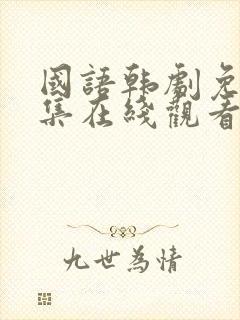 國語韩劇免
集在綫觀看
九世為情